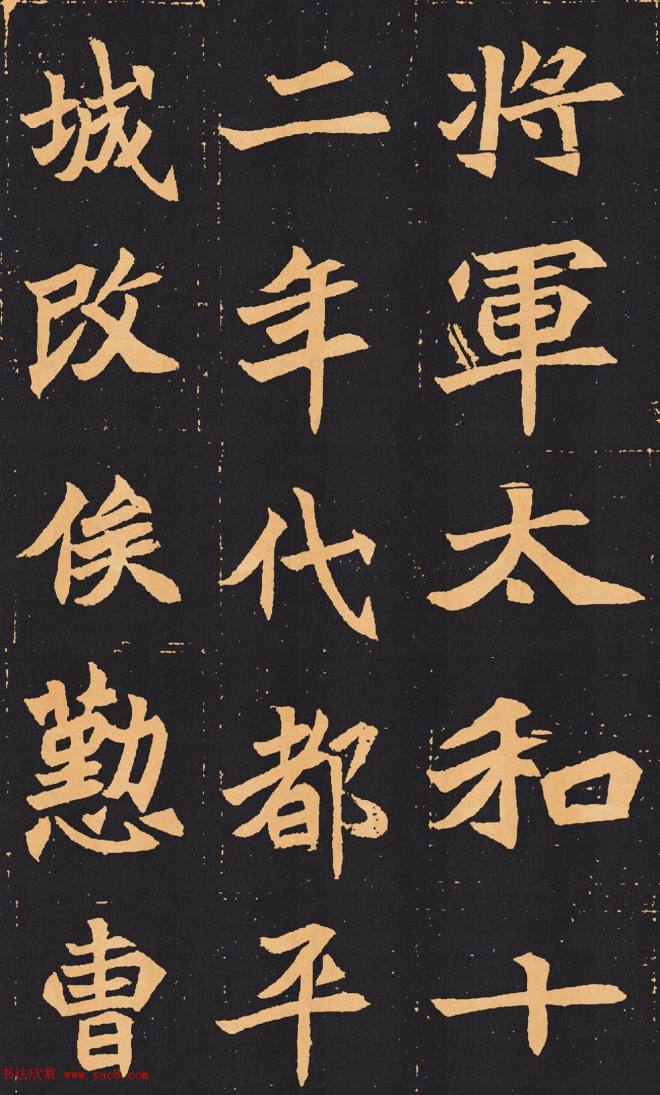 將軍太和十
二年代都平
城改俟懃曹
书法欣赏 www.yac8.com